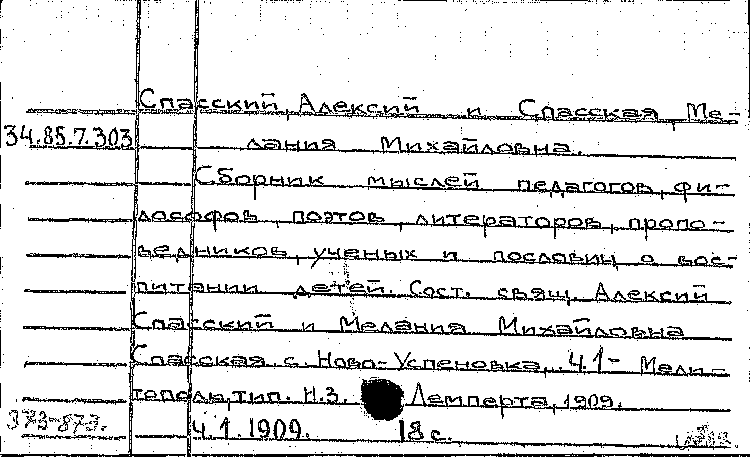 Спасский, Алексий и Спасская, Ме-
34.85.7.303 лания Михайловна.
Сборник мыслей педагогов, фи-
лософов, поэтов, литераторов, пропо-
ведников, ученых и пословиц о вос-
питании детей. Сост. свящ. Алексий
Спасский и Мелания Михайловна
Спасская с. Ново-Успеновка, ч.1- Мели-
тополь, тип. Н.З. Лемперта, 1909.
373-873. ч.1. 1909. 18 с.